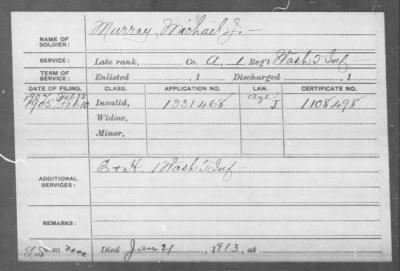 NAME OF SOLDIER: Murray, Michael J.
SERVICE: Late rank, Co. A, 1 Reg't Wash T Inf
TERM OF SERVICE: Enlisted , 1 Discharged , 1
DATE OF FILING. CLASS. APPLICATION NO. LAW. CERTIFICATE NO.
1907, Feb 23 Age
1905, Feb 10 Invalid, 1331468 J 1108498
Widow,
Minor,
ADDITIONAL SERVICES: E & H, 1 Wash T Inf
REMARKS:
Died Jan 21, 1913, at